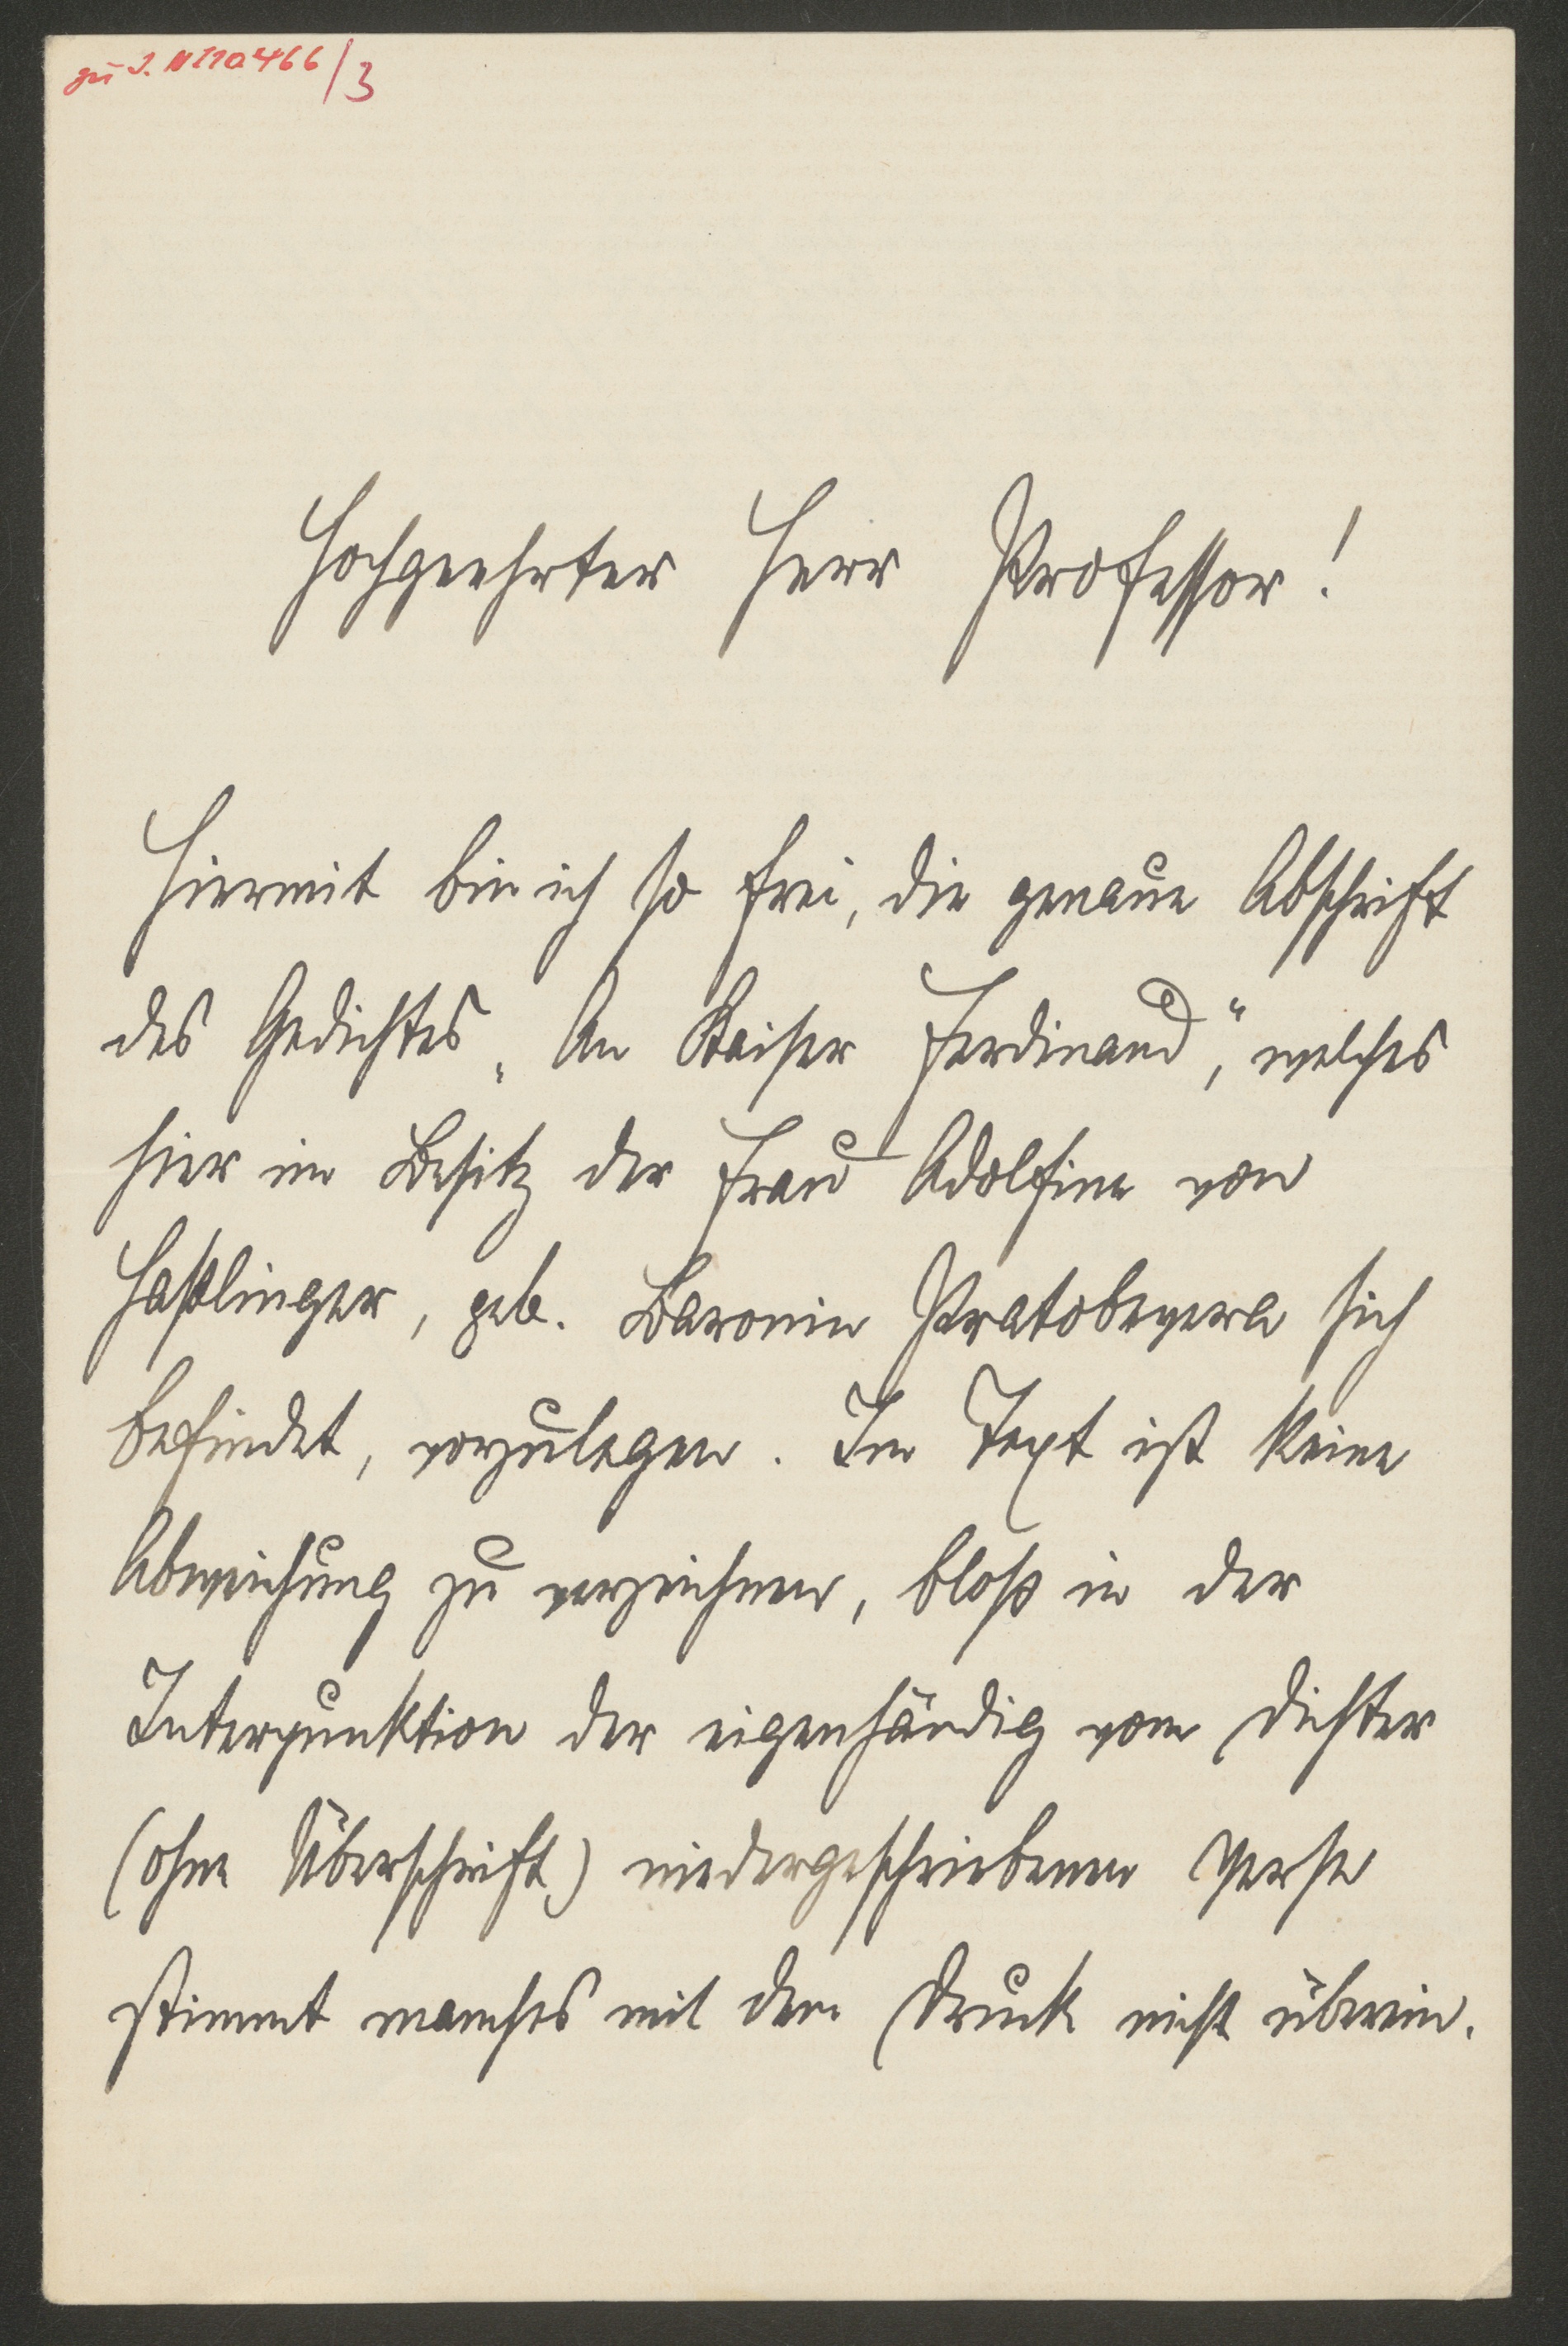 zu J. N 110466/3
Hochgeehrter Herr Professor!
Hiermit bin ich so frei, die genaue Abschrift
des Gedichtes „An Kaiser Ferdinand“, welches
hier im Besitz der Frau Adolfine von
Haßlinger, geb. Baronin Pratobevera sich
befindet, vorzulegen. Im Text ist keine
Abweichung zu verzeichnen, bloß in der
Interpunktion der eigenhändig vom Dichter
(ohne Überschrift) niedergeschriebenen Verse
stimmt manches mit dem Druck nicht überein.